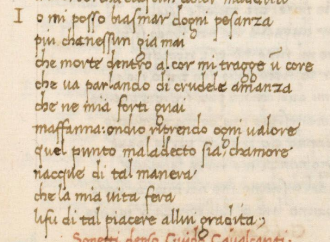 Io mi posso biasmar dogni pesanza
piu chanessun gia mai
che morte dentro al cor mi tragge ū core
che va parlando di crudele amanza
che ne mia forti guai
maffanna: ondio riprendo ogni valore
quel punto maladecto sia, chamore
nacque di tal manera
che la mia vita fera
lifu di tal piacere allui gradita;
Sonetti dello Guido Cavalcanti